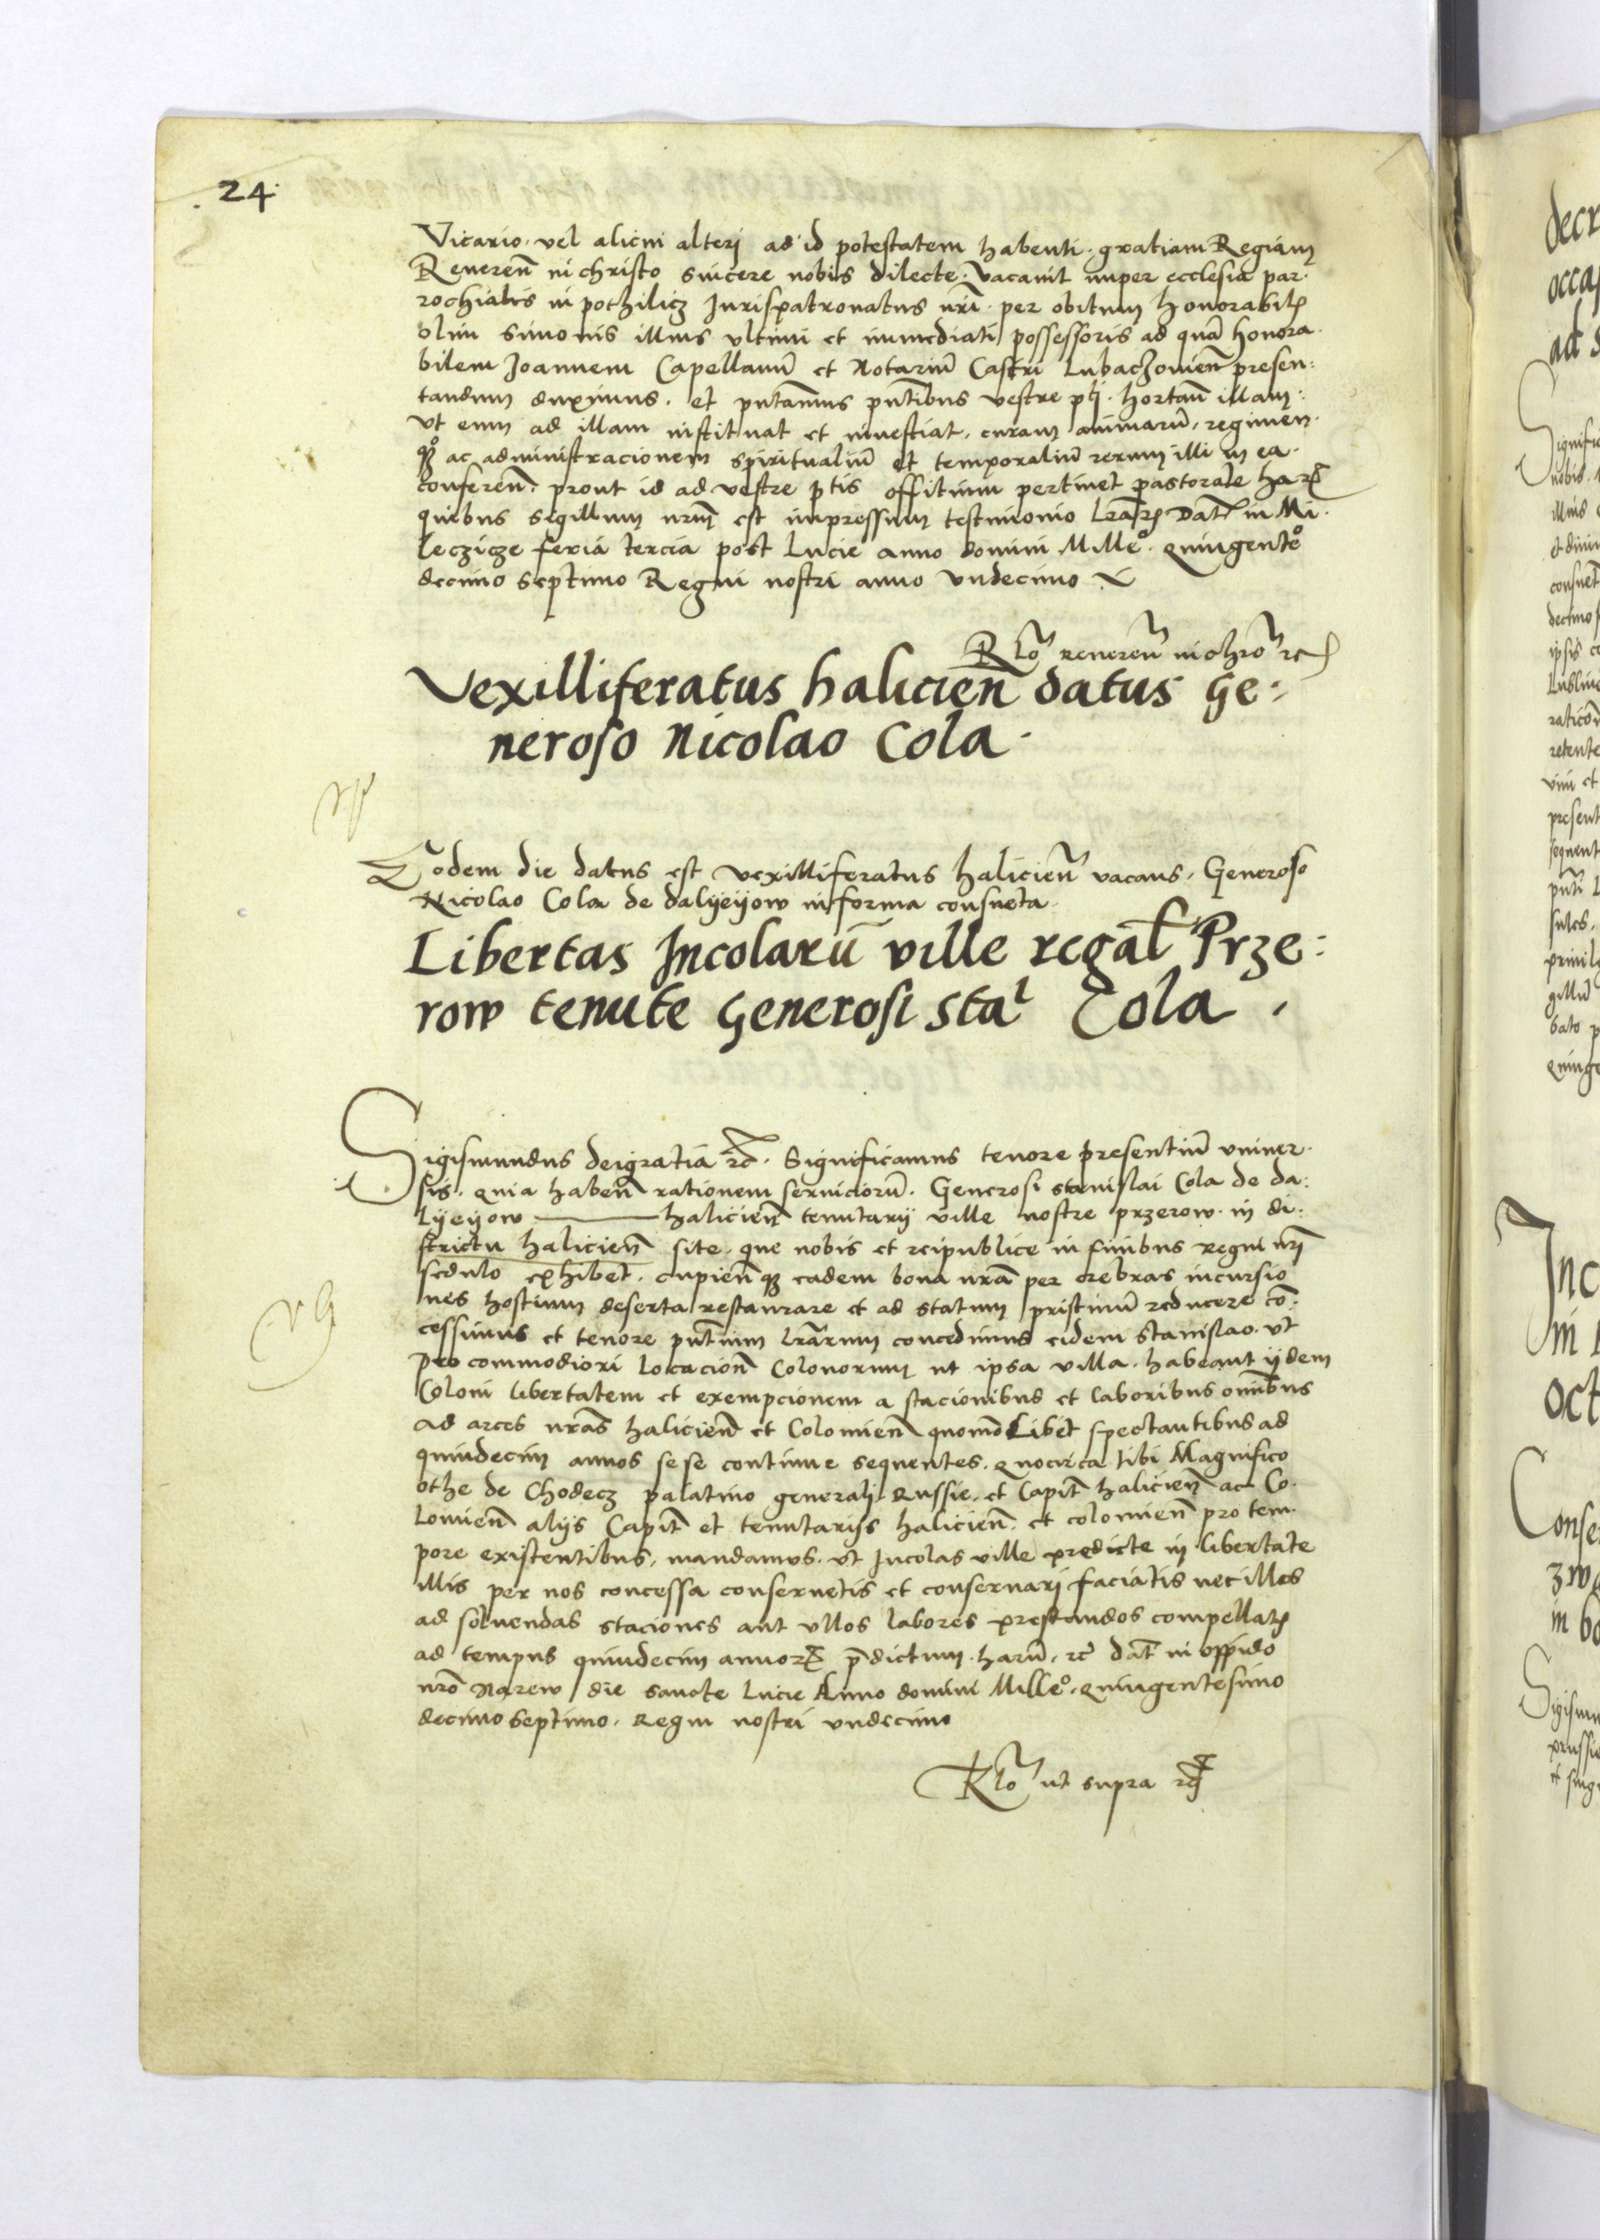 24
Vicario vel alicui alteri ad id potestatem habenti gratiam Regiam
Reveren̄ in christo sincere nobis dilecte. Vacavit nuper ecclesia par
rochialis in pothilicz Jurispatronatus nr̄i per obitum honorabil
olim simonis illius ultimi et immediati possessoris ad quā honora
bilem Joannem Capellanū et Notariū Castri Lubaczovien̄ presen:
tandum duximus. et pn̄tamus pn̄tibus vestre pt̄i. hortan̄ illam:
Ut eum ad illam instituat et investiat, curam animarū, regimen
qȝ ac administracionem spiritualiū et temporaliū rerum illi in ea
conferen̄. prout id ad vestre pt̄is offitium pertinet pastorale harꝝ
quibus sigillum nr̄um est impressum testimonio lr̄arꝝ Dat̄ in Mi
leczicze feria tercia post Lucie anno domini Millᵒ. quingentᵒ
decimo septimo Regni nostri anno undecimo
Rlō reveren̄ in chrō rc̄
Vexilliferatus halicien̄ datus Ge:
neroso Nicolao Cola.
Eodem die datus est vexilliferatus halicien̄ vacans, Generoso
Nicolao Cola de dalyeyow in forma consueta
Libertas Incolarū ville regal̄ Prze:
row tenute Generosi Stal Cola.
Sigismundus deigratia rc̄. Significamus tenore presentiū univer
sis. quia haben̄ rationem serviciorū. Generosi stanislai Cola de da:
lyeyow halicien̄ tenutarij ville nostre przerow in di:
strictu halicien̄ site. que nobis et reipublice in finibus regni nr̄i
sedulo exhibet. cupien̄qȝ eadem bona nr̄a per crebras incursio
nes hostium deserta restaurare et ad statum pristinū reducere cō:
cessimus et tenore pn̄tium lr̄arum concedimus eidem stanislao. ut
pro commodiori locacion̄ Colonorum in ipsa villa. habeant ijdem
Coloni libertatem et exempcionem a stacionibus et laboribus omībus
ad arces nr̄as halicien̄ et Colomien̄ quomōlibet spectantibus ad
quindecim annos sese continue sequentes. quocirca tibi Magnifico
othe de Chodecz palatino generali Russie, et Capit̄ halicien̄ ac Co
lomien̄ alijs Capit̄ et tenutarijs halicien̄ et colomien̄ pro tem
pore existentibus, mandamus. ut Incolas ville predicte in libertate
illis per nos concessa conservetis et conservari faciatis nec illos
ad solvendas staciones aut ullos labores prestandos compellatꝭ
ad tempus quindecim annorꝝ p̄dictum. harū, rc̄ dat̄ in oppido
nr̄o Narew die sancte Lucie Anno domini Millᵒ. quingentesimo
decimo septimo. Regni nostri undecimo
Rlō ut supra